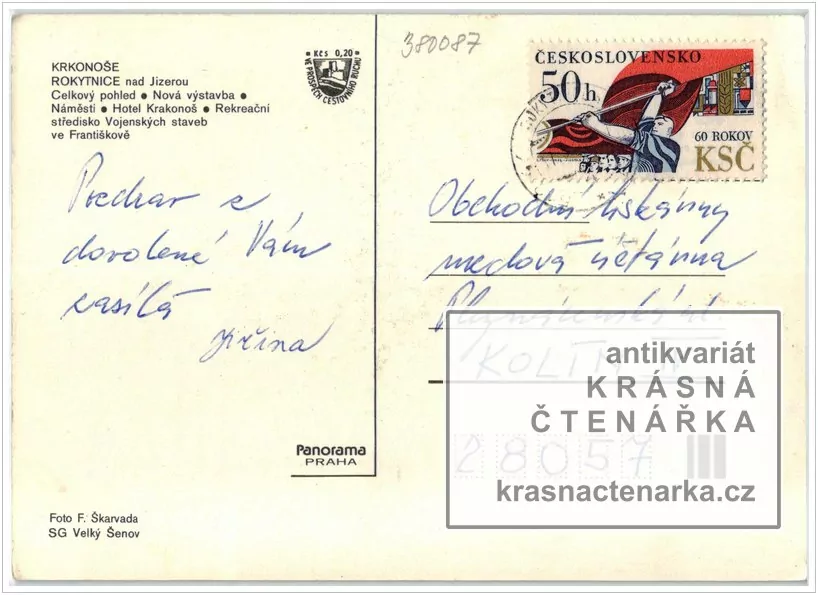 KRKONOŠE
ROKYTNICE nad Jizerou
Celkový pohled ● Nová výstavba ●
Náměstí ● Hotel Krakonoš ● Rekreační
středisko Vojenských staveb
ve Františkově
● Kčs 0,20 ●
VE PROSPĚCH CESTOVNÍHO RUCHU
380087
ČESKOSLOVENSKO
50h
60 ROKOV
KSČ
Pozdrav z
dovolené Vám
zasílá
Jiřina
Obchodní tiskárny
mzdová účtárna
KOLÍN
28057
antikvariát
KRÁSNÁ
ČTENÁŘKA
krasnactenarka.cz
Panorama
PRAHA
Foto F. Škarvada
SG Velký Šenov